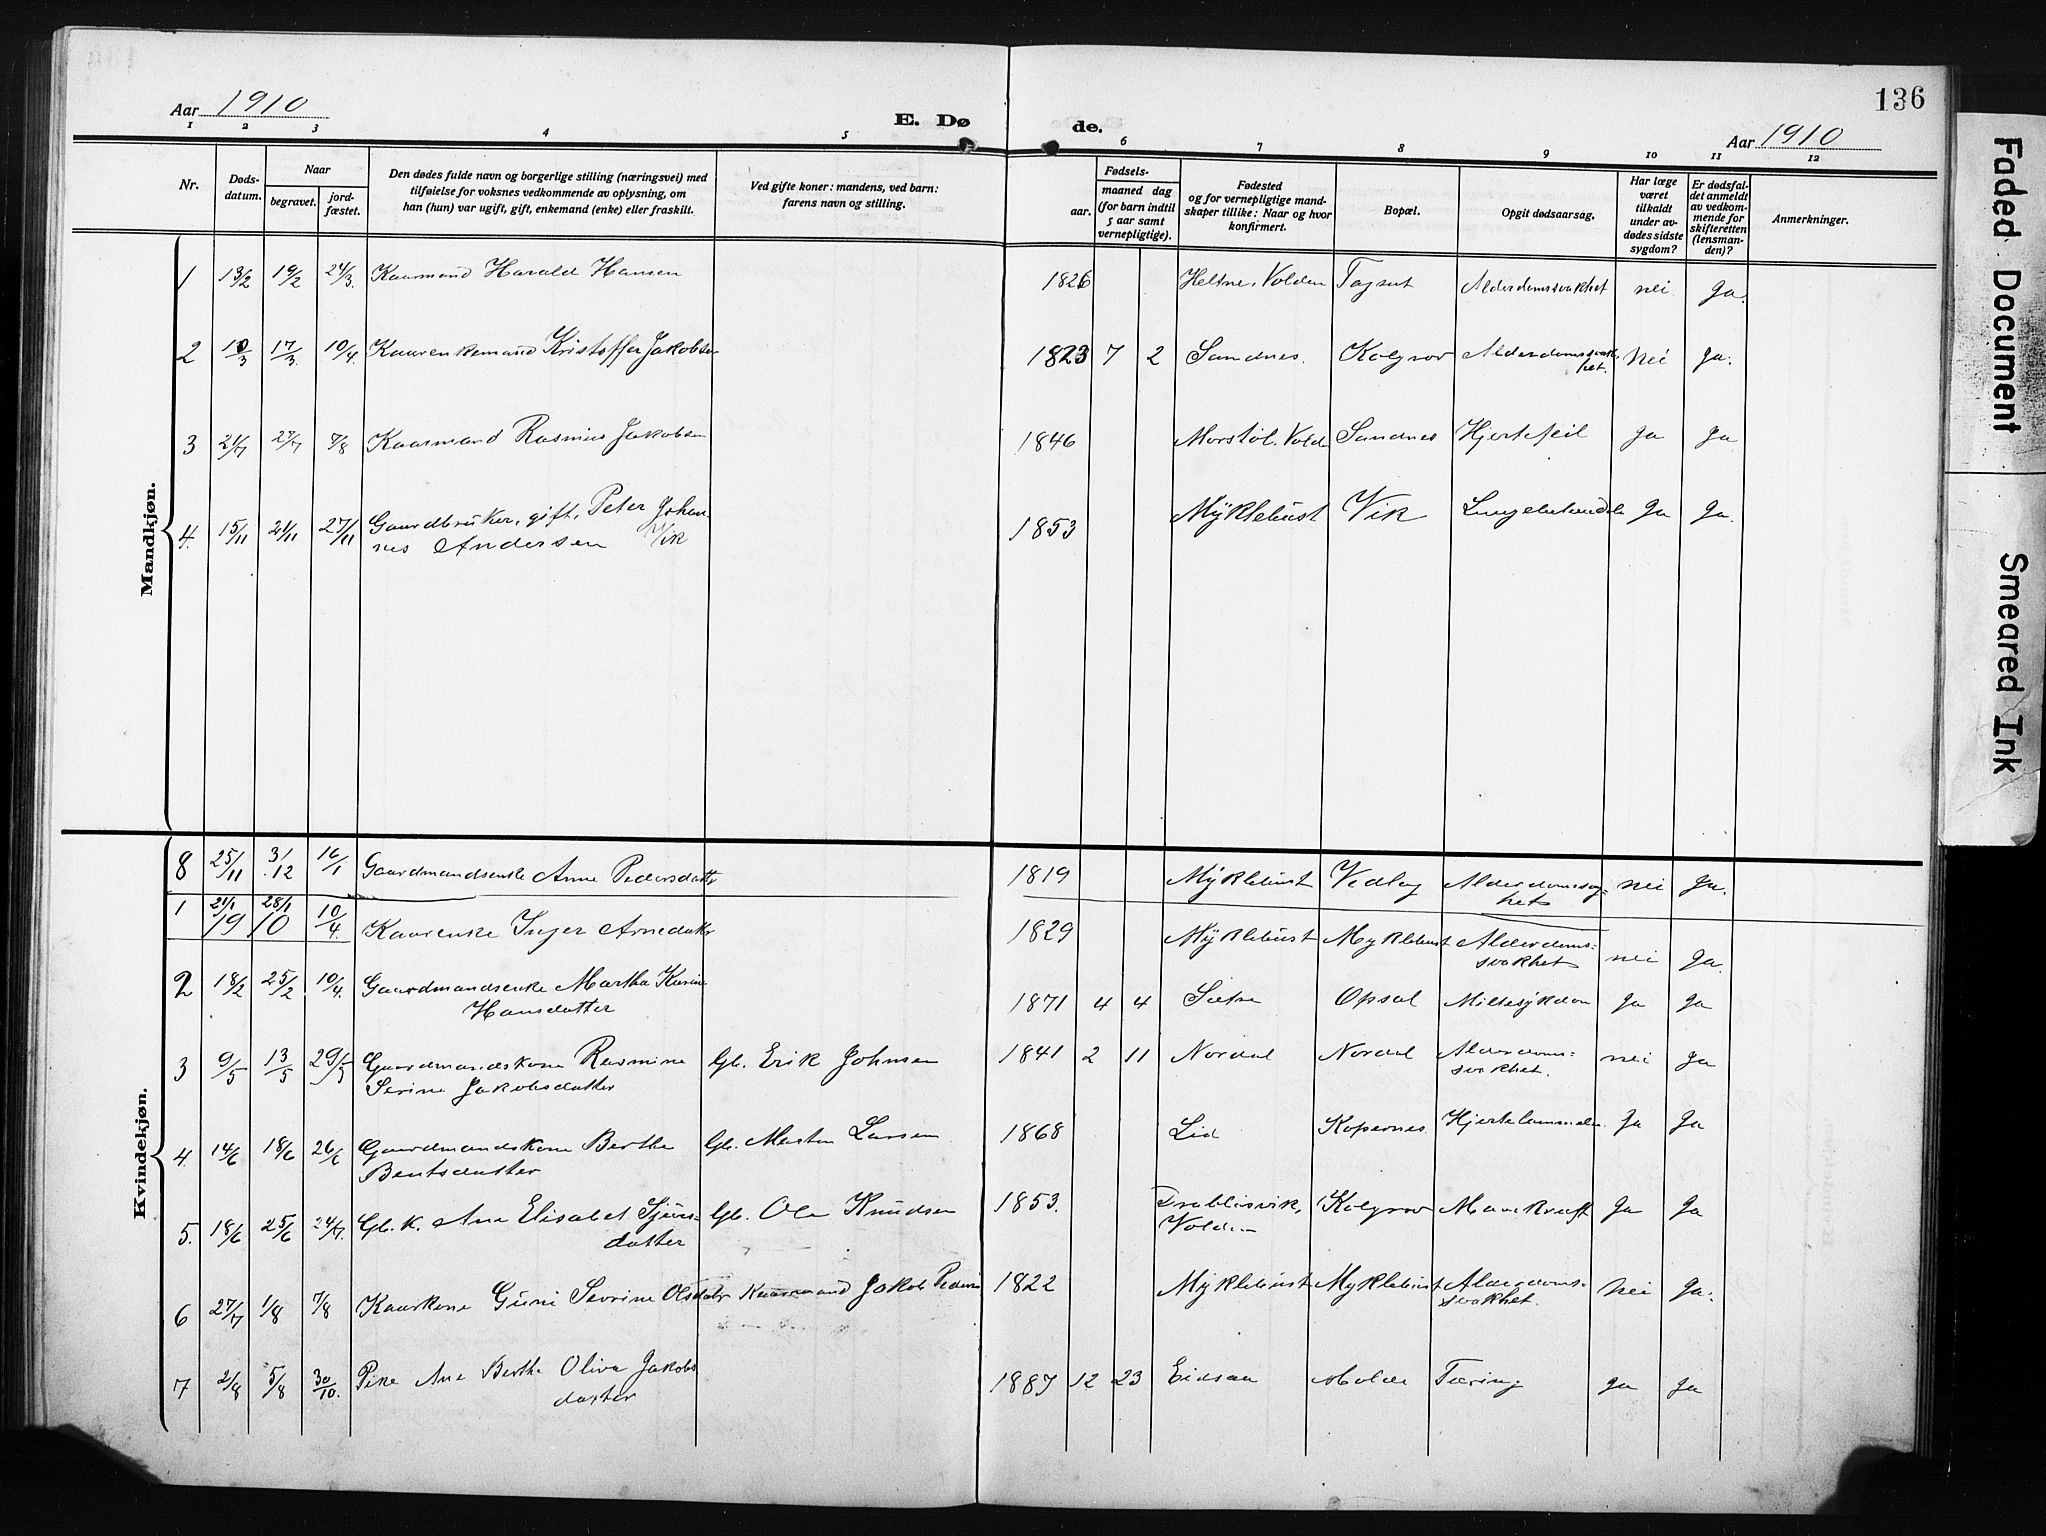 136
Aar 1910
E. Dø de.
Aar 1910
1 2 3 4 5 6 7 8 9 10 11 12
Nr.
Døds-
datum.
Naar
begravet.
jord-
fæstet.
Den dødes fulde navn og borgerlige stilling (næringsvei) med
tilføielse for voksnes vedkommende av oplysning, om
han (hun) var ugift, gift, enkemand (enke) eller fraskilt.
Ved gifte koner: mandens, ved barn:
farens navn og stilling.
Fødsels-
aar.
maaned dag
(for barn indtil
5 aar samt
vernepligtige).
Fødested
og for vernepligtige mand-
skaper tillike: Naar og hvor
konfirmert.
Bopæl.
Opgit dødsaarsag.
Har læge
været
tilkaldt
under av-
dødes sidste
sygdom?
Er dødsfal-
det anmeldt
av vedkom-
mende for
skifteretten
(lensman-
den)?
Anmerkninger.
Mandkjøn.
1 13/2 19/2 24/3. Kaarmand Harald Hansen 1826 Heltne, Volden Alderdomssvakhet nei. Ja.
2 10/3 17/3. 10/4. Kaarenkemand Kristoffer Jakobsen 1823 7 2 Sandnes. Kolgrov Alderdomssvak-
het. Nei Ja.
3 21/7 27/7 7/8 Kaarmand Rasmus Jakobsen 1846 Morstøl. Volde Sandnes Hjertefeil Ja Ja
4. 15/11 21/11 27/11 Gaardbruker, gift, Peter Johan-
nes Andersen Vik 1853 Myklebust Vik Ja Ja.
Kvindekjøn.
8 25/11 3/12 16/1 Gaardmandsenke Anne Pedersdatter 1819 Myklebust Vedlog nei Ja.
1 21/1 28/1 10/4. Kaarenke Inger Arnedatter 1829 Myklebust Myklebust Alderdoms-
svakhet nei Ja.
1910
2 18/2 25/2 10/4. Gaardmandsenke Martha Karin
Hansdatter 1871 4 4 Sætre Opsal Miltesykdom Ja Ja
3 9/5 13/5 29/5 Gaardmandskone Rasmine
Serine Jakobsdatter Gb. Erik Johnsen 1841 2 11 Nordal Nordal Alderdoms-
svakhet. nei Ja
4. 14/6 18/6 26/6 Gaardmandskone Berthe
Bentsdatter Gb. Morten Larsen 1868 Lid Kopernes Ja Ja
5. 18/6 25/6 24/7. Gb. k. Ane Elisabet Sjurs-
datter Gb. Ole Knudsen 1853. Volden Kolgrov Mavekræft Ja Ja
6 27/7 1/8 7/8 Kaarkone Guri Sevrine Olsdatr Kaarmand Jakob Peders 1822 Myklebust Myklebust Alderdoms-
svakhet. Nei Ja.
7 2/8 5/8 30/10. Pike Ane Berthe Oliva Jakobs
datter 1887 12 23 Eidsaa Molde Tæring Ja Ja
Faded Document
Smeared Ink